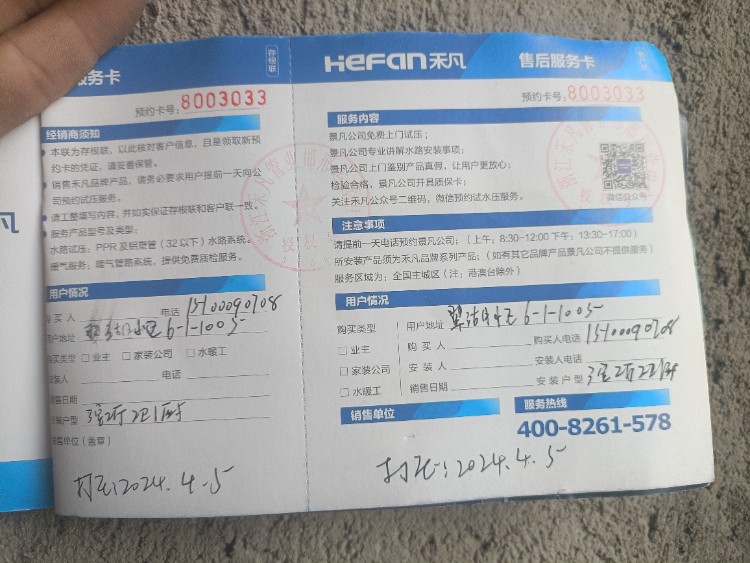 服务卡
存根联
预约卡号：8003033
经销商须知
本联为存根联，以此核对客户信息，且是领取新预
约卡的凭证，请妥善保管。
销售禾凡品牌产品，请务必要求用户提前一天向公
司预约试压服务。
请工整填写内容，并如实保证存根联和客户联一致。
服务产品型号及类型：
水路试压：PPR及铝塑管（32以下）水路系统。
暖气服务：暖气管路系统，提供免费质检服务。
用户情况
购买人 电话 15100090708
用户地址 6-1-1005
购买类型 □ 业主 □ 家装公司 □ 水暖工
安装人 电话
销售日期
安装户型 3室2厅2卫1厨
销售单位（盖章）
打压：2024.4.5
HeFan禾凡 售后服务卡
预约卡号：8003033
服务内容
景凡公司免费上门试压；
景凡公司专业讲解水路安装事项；
景凡公司上门鉴别产品真假，让用户更放心；
检验合格，景凡公司开具质保卡；
关注禾凡公众号二维码，微信预约试水压服务。
微信公众号
注意事项
请提前一天电话预约景凡公司；（上午：8:30-12:00 下午：13:30-17:00）
所安装产品须为禾凡品牌系列产品；（如有其它品牌产品景凡公司不提供服务）
服务区域为：全国主城区（注：港澳台除外）
用户情况
购买类型 用户地址 6-1-1005
□ 业主 购买人 购买人电话 15100090708
□ 家装公司 安装人 安装人电话
□ 水暖工 销售日期 安装户型 3室2厅2卫1厨
销售单位 服务热线
400-8261-578
打压：2024.4.5